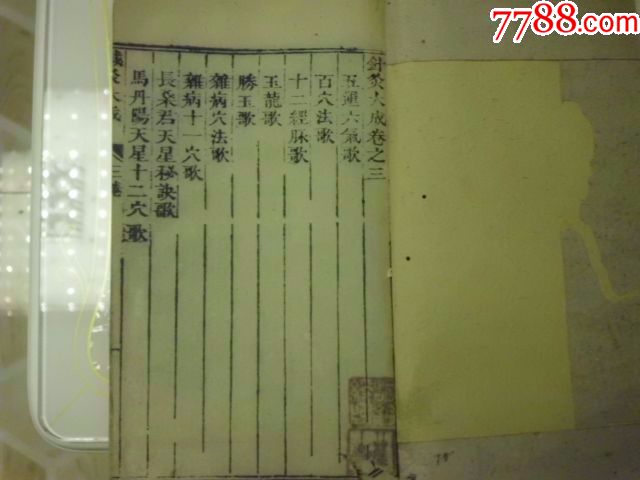 7788.com
針灸大成卷之三
五運六氣歌
百穴法歌
十二經脉歌
玉龍歌
勝玉歌
雜病穴法歌
雜病十一穴歌
長桑君天星秘訣歌
馬丹陽天星十二穴歌
三卷